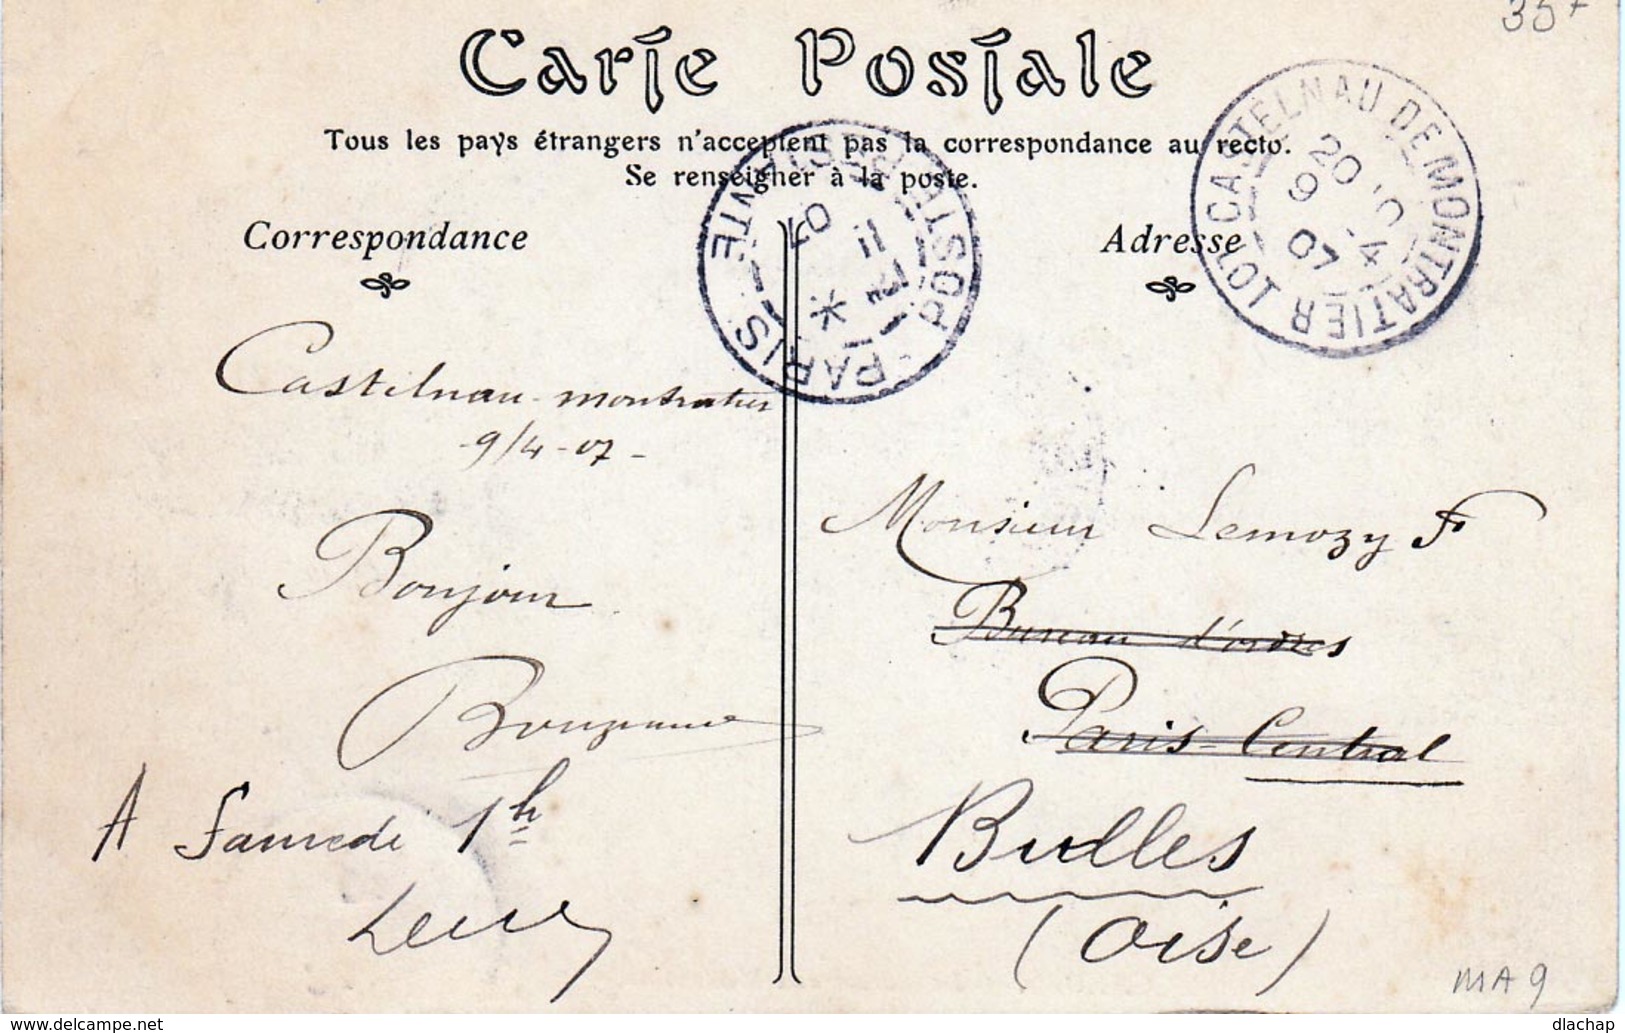 35 F
Carte Postale
Tous les pays étrangers n'acceptent pas la correspondance au recto.
Se renseigner à la poste.
Correspondance
Adresse
CASTELNAU DE MONTRATIER LOT
20
9 - 4
07
PARIS
POSTE RESTANTE
11
07
Castelnau-montratier
-9/4-07-
Bonjour
A Samedi 1h
Monsieur Lemozy F
Bureau d'ordres
Paris-Central
Bulles
(Oise)
MA9
delcampe.net
dlachap